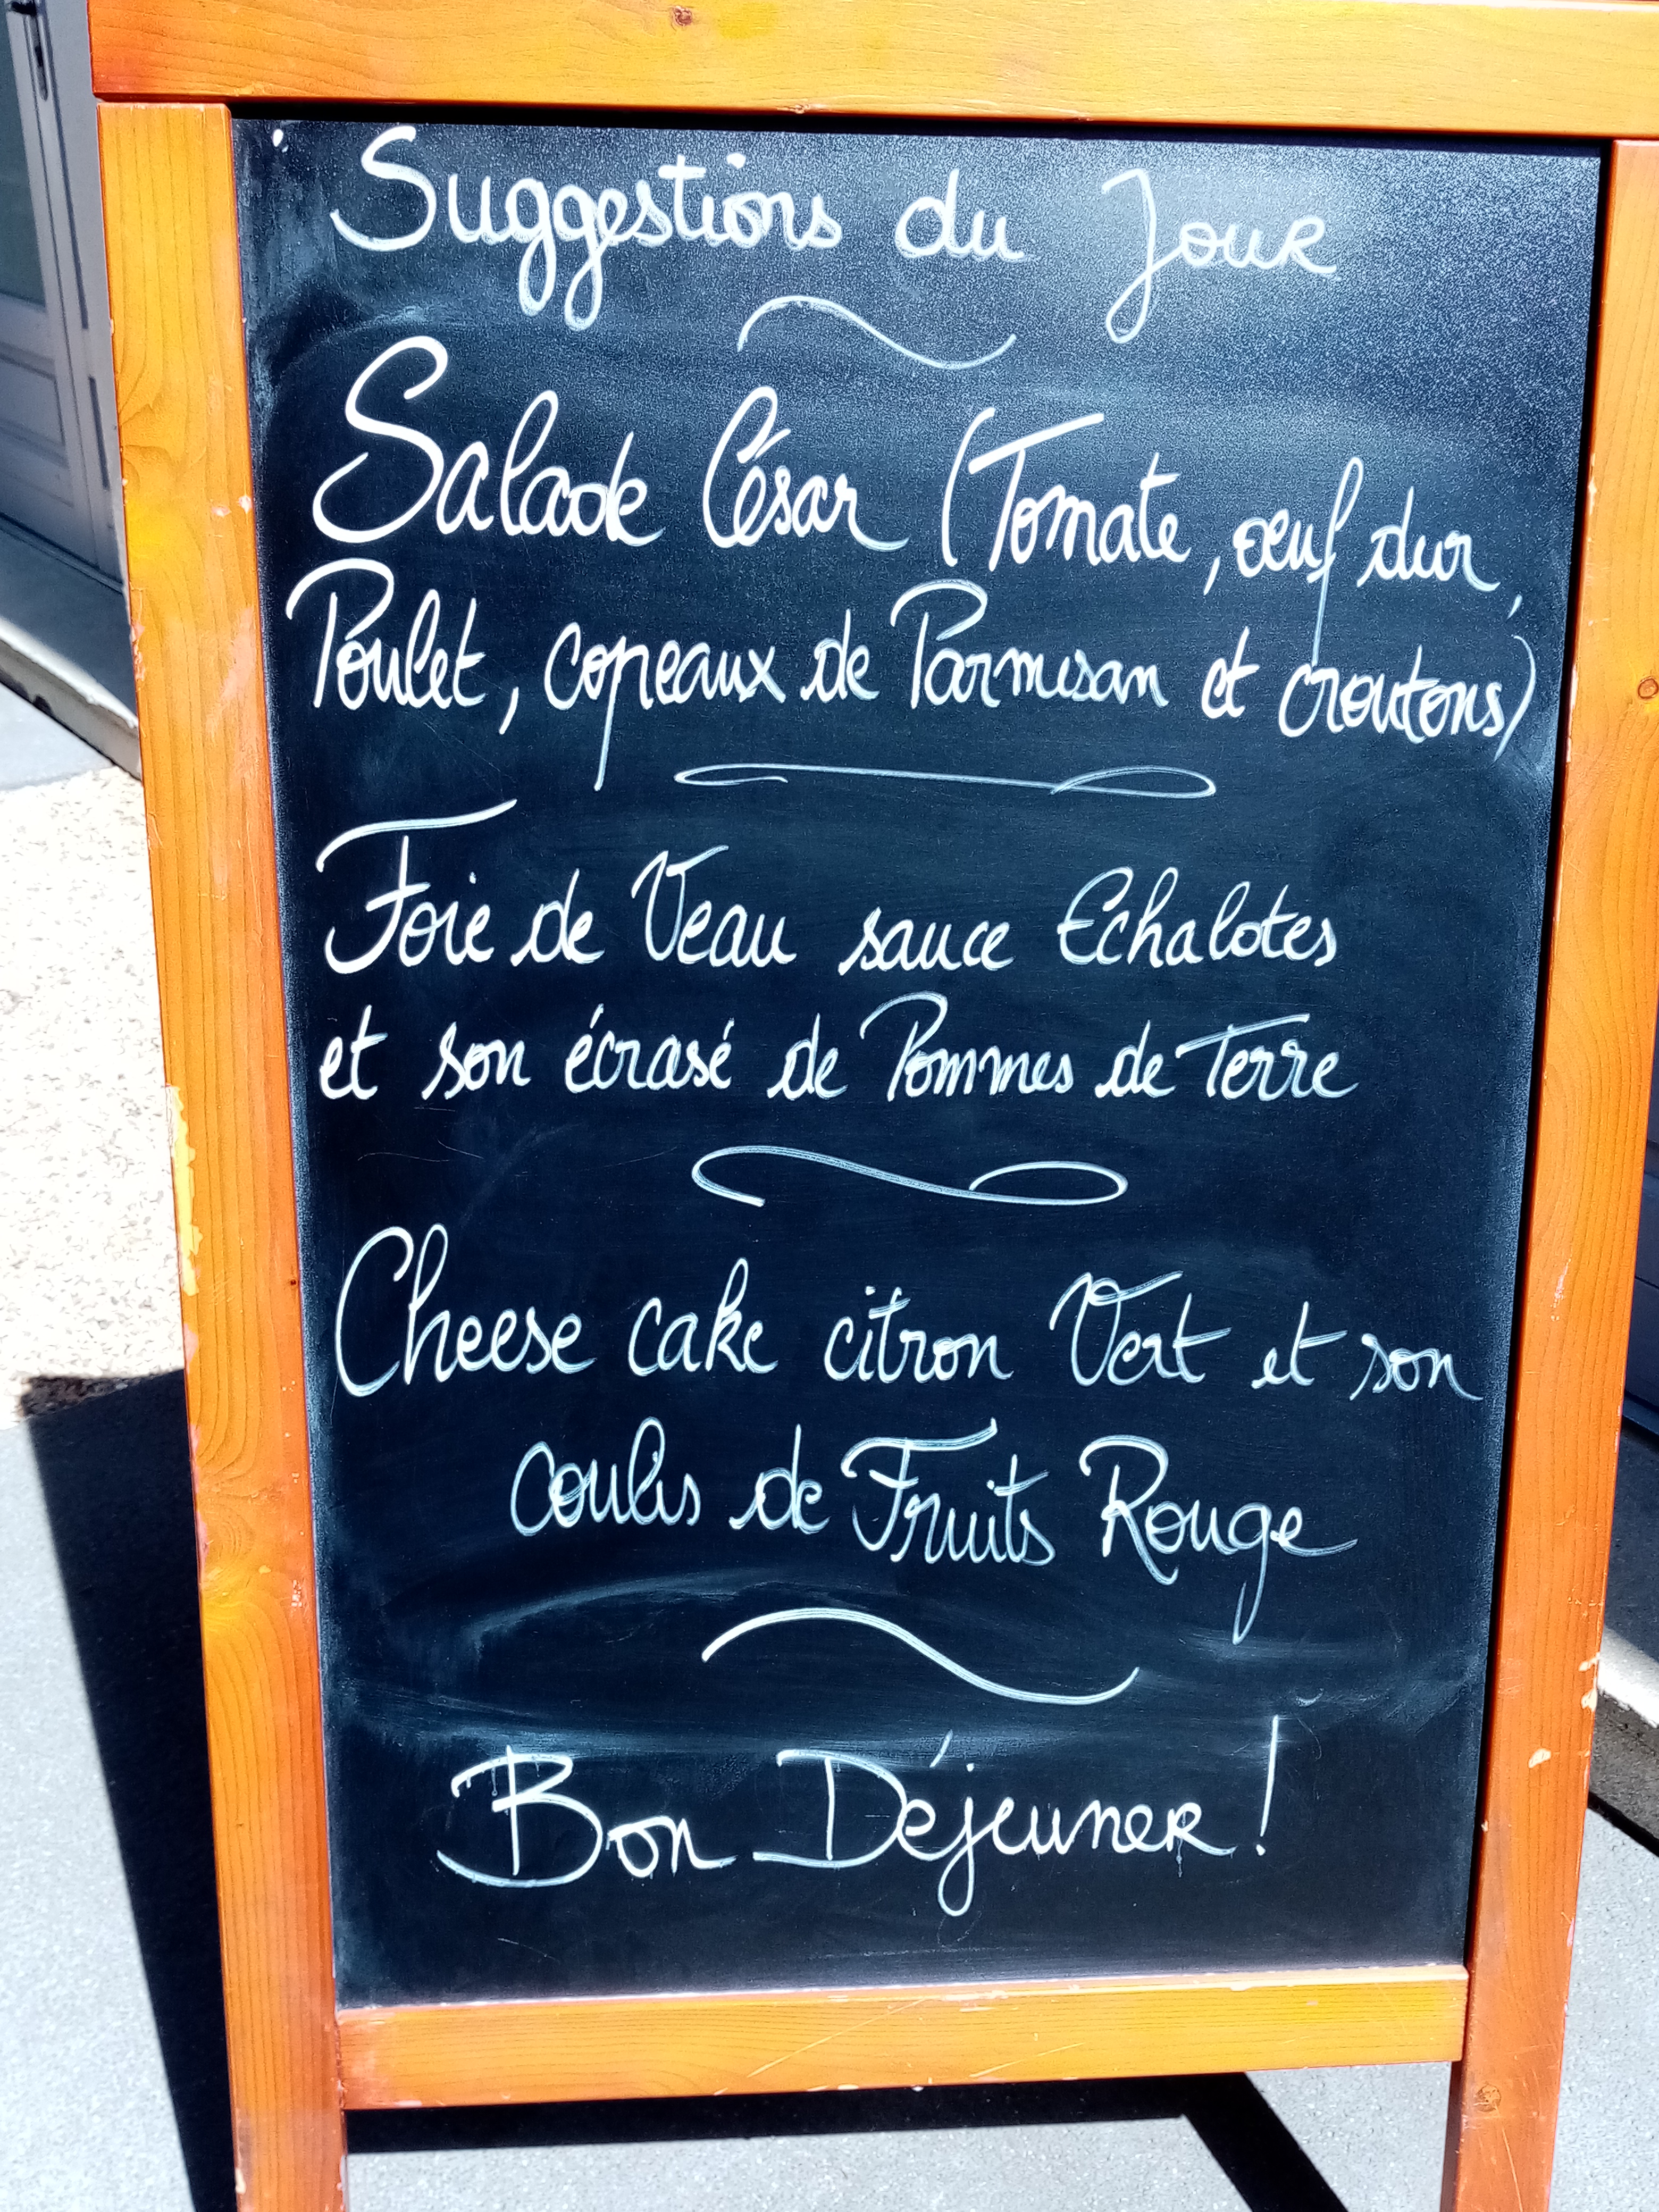 Suggestions du Jour
Salade César (Tomate, œuf dur,
Poulet, copeaux de Parmesan et croutons)
Foie de Veau sauce Echalotes
et son écrasé de Pommes de Terre
Cheese cake citron Vert et son
coulis de Fruits Rouge
Bon Déjeuner !